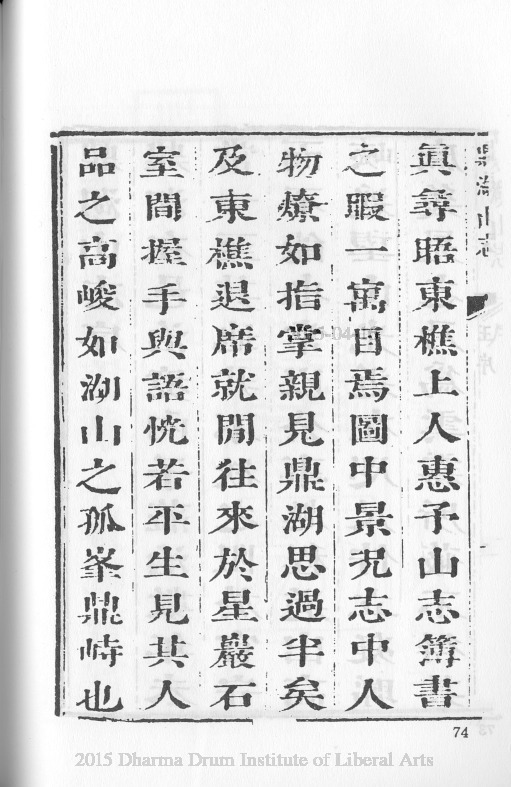 眞尋晤東樵上人惠予山志簿書
之暇一寓目焉圖中景况志中人
物燎如指掌親見鼎湖思過半矣
及東樵退席就閒往來於星巖石
室間握手與語恍若平生見其人
品之高峻如湖山之孤峯鼎峙也
鼎湖山志
汪序
74
2015 Dharma Drum Institute of Liberal Arts